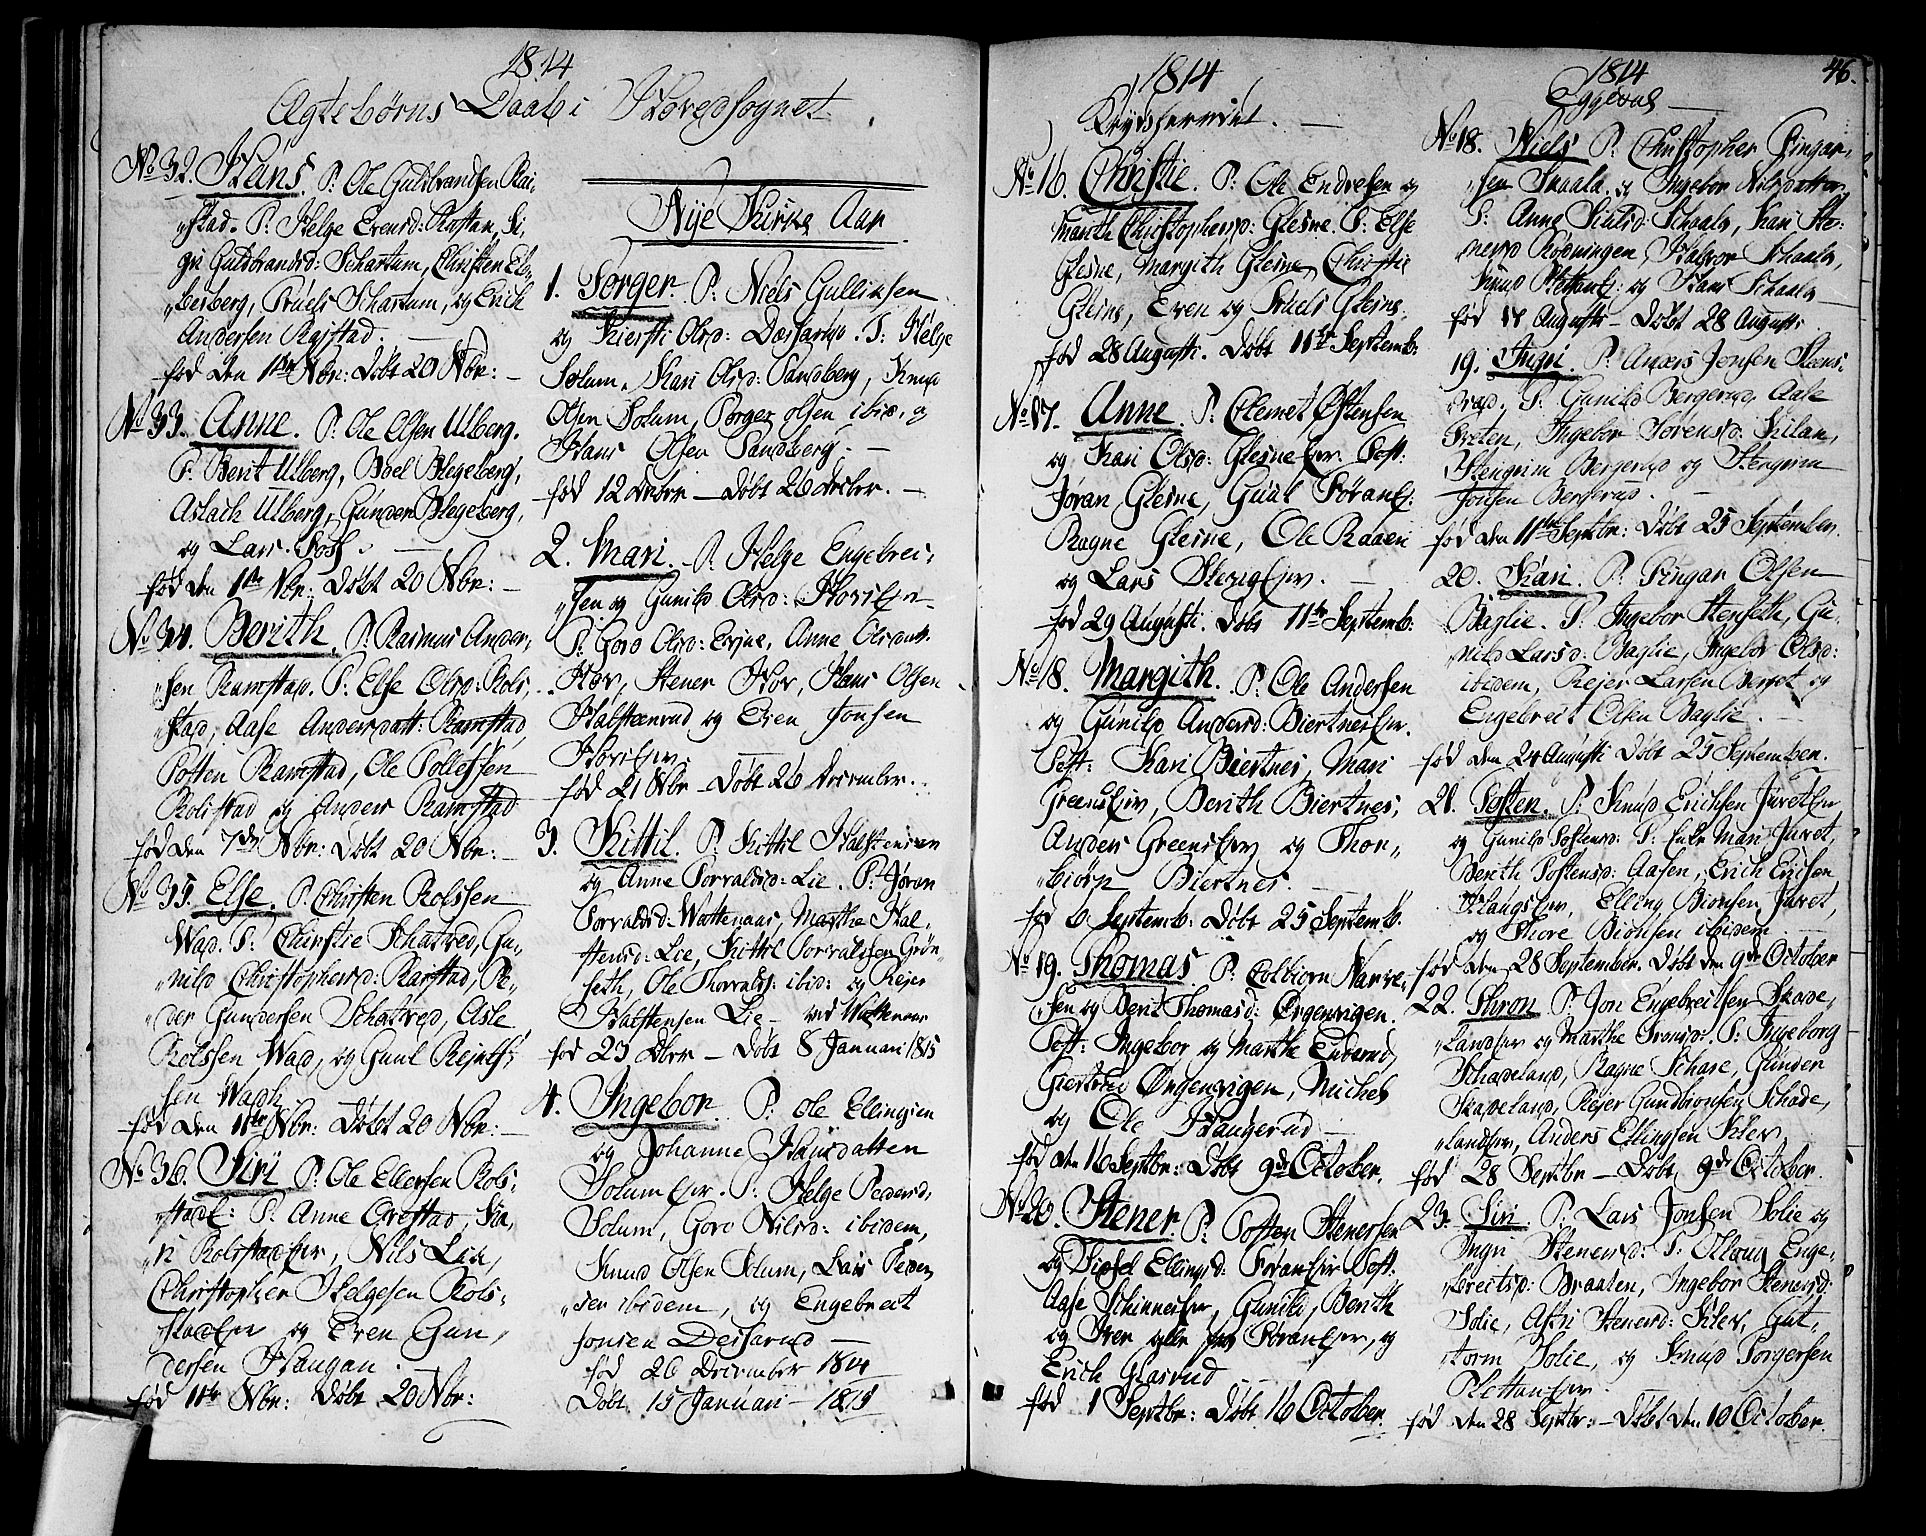 1814
Ægtebørns Daab i Hovedsognet
No 32. Hans. P: Ole Guldbrandsen Rai„
„stad. T: Helge Evensd: Rustan, Si„
gri Guldbrandsd: Schartum, Christen El„
„besberg, Truels Schartum, og Erich
Andersen Rajstad.
fød den 1ste Nbr: Døbt 20 Nbr: —
No 33. Anne. P: Ole Olsen Ulberg.
T: Berit Ulberg, Boel Blegeberg,
Aslach Ulberg, Gunder Blegeberg,
og Lars Foss. —
fød den 1ste Nbr: Døbt 20 Nbr: —
No 34. Berith. P: Rasmus Ander„
„sen Ramstad. T: Else Olsd: Rols„
„stad, Aase Andersdatt: Ramstad,
Tosten Ramstad, Ole Tollefsen
Rolfstad og Anders Ramstad
fød den 7de Nbr: Døbt 20 Nbr: —
No 35. Else. P: Christen Rolfsen
Wad. T: Christie Schatved, Gu„
„nild Christophersd: Rajstad, Pe„
„der Gundersen Schatved, Asle
Rolfsen Wad, og Guul Rejers„
sen Wad.
fød den 11te Nbr: Døbt 20 Nbr: —
No 36. Siri P: Ole Ellefsen Rols„
„stadE: T: Anne Grefstad, Ka„
ri Rolfstadejer, Nils Lia,
Christopher Helgesen Rols„
stadejer og Even Gun„
dersen Haugan. —
fød 11te Nbr: Døbt 20 Nbr:
Nye Kirke Aar.
1. Torger. P: Niels Gulliksen
og Kiersti Olsd: Dæssarud. T: Helge
Solum, Kari Olsd: Sandberg, Knud
Olsen Solum, Torger Olsen ibid. og
Hans Olsen Sandberg. —
fød 12 Decbr — Døbt 26 Decbr. —
2. Mari. P: Helge Engebret„
„sen og Gunild Olsd: Hovsejer
T: Goro Olsd: Evjue, Anne Olsdatt:
Hov, Stener Hov, Hans Olsen
Halsteenrud og Even Jonsen
Hovsejer.
fød 21 Nbr — Døbt 26 December.
3. Kittil. P: Kittil Halstensen
og Anne Torvaldsd: Lie. T: Jøran
Torvaldsd: Wattenaas, Marthe Hal„
stensd: Lie, Kittil Torvaldsen Grøn„
seth, Ole Thorvalds: ibid: og Rejer
Halstensen Lie — ved Wattenaas
fød 23 Dbr — Døbt 8 Januari 1815
4. Ingebor P: Ole Ellingsen
og Johanne Hansdatter
Solumejer. T: Helge Pedersd,
Solum, Goro Nilsd: ibidem,
Knud Olsen Solum, Lars Peder„
„sen ibidem, og Engebret
Jonsen Dessarud —
fød 26 December 1814
Døbt 15 Januari — 1815
1814
Krydsherred. —
No 16. Christie. P: Ole Endresen og
Marith Christophersd: Glesne. T: Else
Glesne, Margith Glesne, Christi
Glesne, Even og Truels Glesne.
fød 28 Augusti. Døbt 11te Septemb:
No 17. Anne. P: Clemet Østensen
og Kari Olsd: Glesneejer. Test:
Jøran Glesne, Guul Søranej:
Ragne Glesne, Ole Raaen
og Lars Skerigejer. —
fød 29 Augusti. Døbt 11te Septemb:
No 18. Margith. P: Ole Andersen
og Gunild Andersd: Biertnesejer.
Test: Kari Biertnes, Mari
Greensejer, Berith Biertnes,
Anders Greensejer og Thor„
„biørn Biertnes. —
fød 6 Septemb: Døbt 25 Septemb.
No 19. Thomas P: Colbiørn Narve„
„sen og Berit Thomasd: Ørgenvigen.
Test: Ingebor og Marthe Enderud,
Giertrud Ørgenvigen, Michel
og Ole Haugerud —
fød den 16 Septbr: Døbt 9de October.
No 20. Stener. P: Tosten Stenersen
og Sissel Ellingsd: Søranejer Test:
Aase Skinnesejer, Gunild, Berith
og Iver alle paa Søranejer, og
Erich Glasrud
fød 1 Septbr: Døbt 16 October.
46.
1814
Eggedal —
No 18. Niels P: Christopher Fingar„
„sen Skaala. og Ingebor Nilsdatter
T: Anne Nilsd: Schaala, Kari Ste„
nersd Rodningen, Halvor Schaala,
Knud Plettanej: og Hans Schaala —
fød 17 Augusti — Døbt 28 Augusti
19. Ingri. P: Anders Jonsen Steens„
„rud. T: Gunild Bergerud, Aale
Breten, Ingebor Sørensd: Kilan,
Stengrim Bergerud og Stengrim
Jonsen Bergerud. —
fød den 11te Septbr: Døbt 25 September.
20. Kari. P: Fingar Olsen
Baglie. T: Ingebor Stenseth, Gu„
„nild Larsd: Baglie, Ingebor Olsd:
ibidem, Rejer Larsen Berget og
Engebreit Olsen Baglie. —
fød den 24 Augusti Døbt 25 September.
21. Tosten. P: Knud Erichsen Juvetejer
og Gunild Tostensd: T: Enke Mari Juvet,
Berith Tostensd: Aasen, Erich Ericsen
Haugsejer, Elling Biønsen Juvet,
og Thore Biønsen ibidem. —
fød den 28 September. Døbt den 9de October
22. Thron P: Jon Engebreitsen Skade„
„landejer og Marthe Tronsd: T: Ingeborg
Schadeland, Ragne Schare, Gunder
Skadeland, Rejer Gundbiønsen Schade„
„landejer, Anders Ellingsen Kilev
fød 28 Septbr — Døbt 9de October.
23. Siri P: Lars Jonsen Solie og
Ingri Stenersd: T: Ollaug Enge„
„breitsd: Braaten, Ingebor Stenersd:
Solie, Astri Stenersd: Kilev, Gut„
„torm Solie, og Knud Torgersen
Plettanejer.
fød den 28 Septbr: — Døbt den 10 October.